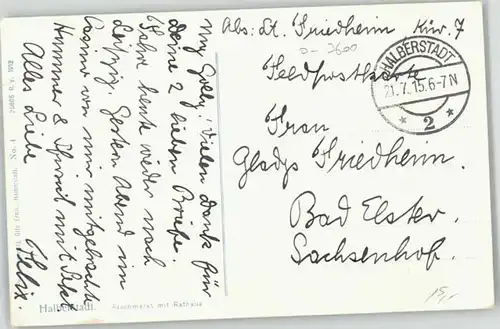 Abs: Lt. Friedheim Kür. 7
D-3600
Feldpostkarte
HALBERSTADT
21.7.15.6-7N
* 2 *
Frau
Gladys Friedheim.
Bad Elster.
Sachsenhof.
15,-
My Golly! Vielen Dank für
Deine 2 lieben Briefe.
Fahre heute wieder nach
Leipzig. Gestern Abend im
Casino von mir mitgebrachte
Hummer &
mit
Alles Liebe
Felix.
Halberstadt. Fischmarkt mit Rathaus
No. 4